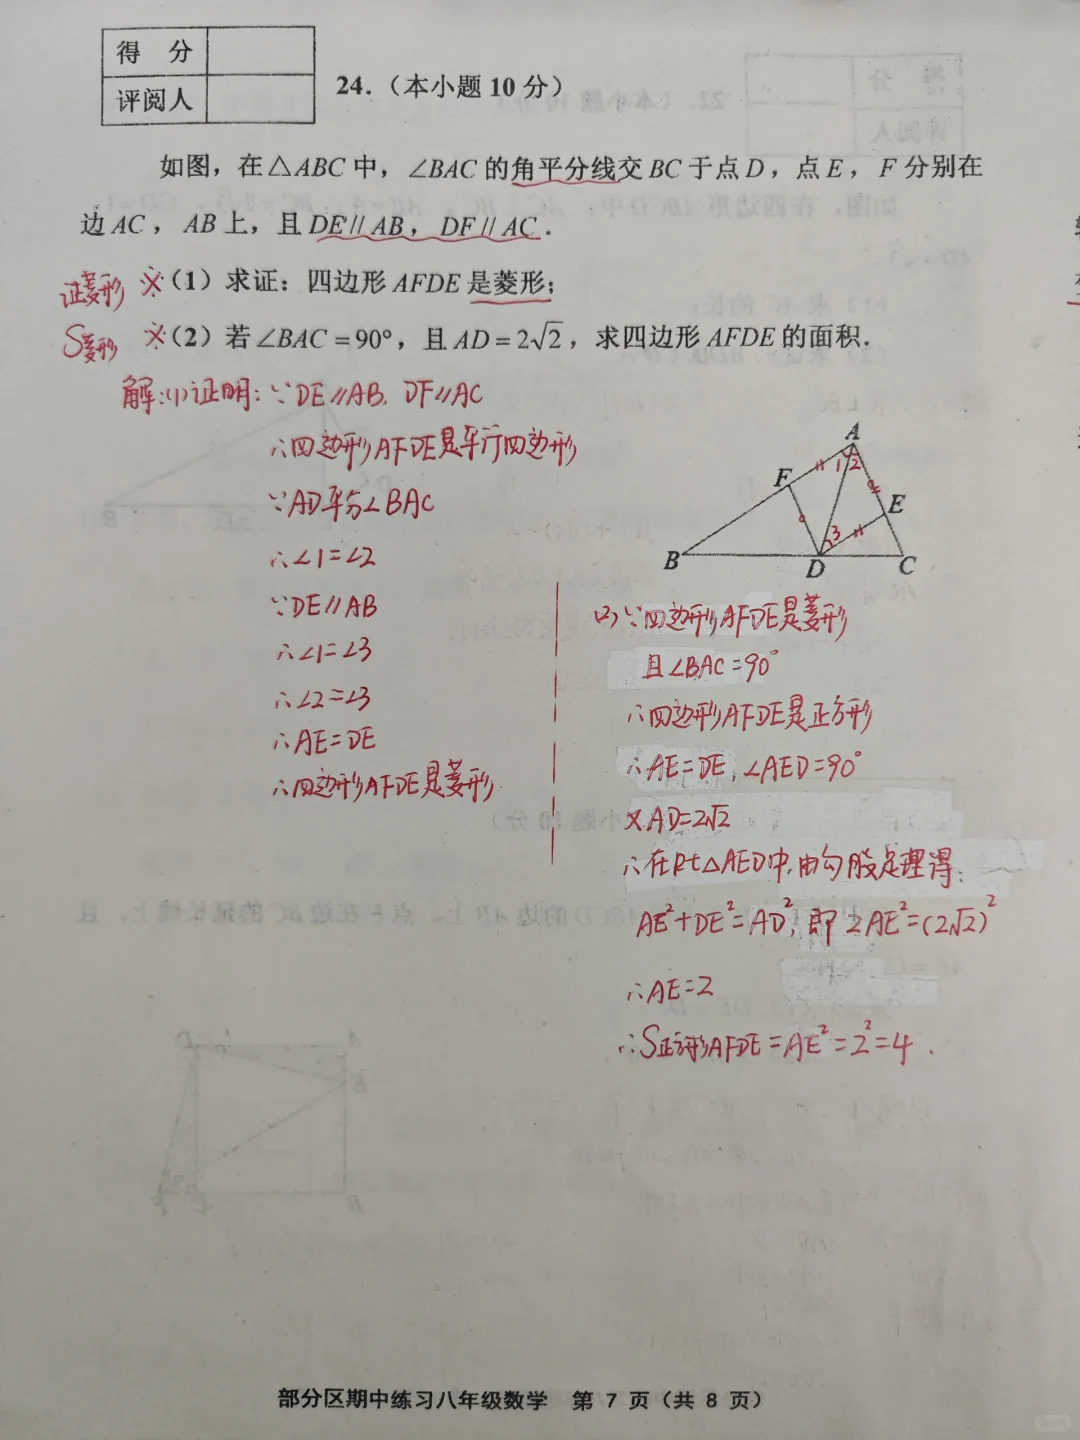 得 分
评阅人
24.（本小题10分）
如图，在△ABC中，∠BAC的角平分线交BC于点D，点E，F分别在
边AC，AB上，且DE∥AB，DF∥AC．
证菱形 ※（1）求证：四边形AFDE是菱形；
S菱形 ※（2）若∠BAC=90°，且AD=2√2，求四边形AFDE的面积．
解:(1)证明:∵DE∥AB, DF∥AC
∴四边形AFDE是平行四边形
∵AD平分∠BAC
∴∠1=∠2
∵DE∥AB
∴∠1=∠3
∴∠2=∠3
∴AE=DE
∴四边形AFDE是菱形
A
1 2
F
E
3
B D C
(2)∵四边形AFDE是菱形
且∠BAC=90°
∴四边形AFDE是正方形
∴AE=DE,∠AED=90°
又AD=2√2
∴在Rt△AED中,由勾股定理得:
AE²+DE²=AD²,即2AE²=(2√2)²
∴AE=2
∴S正方形AFDE=AE²=2²=4.
部分区期中练习八年级数学 第 7 页（共 8 页）